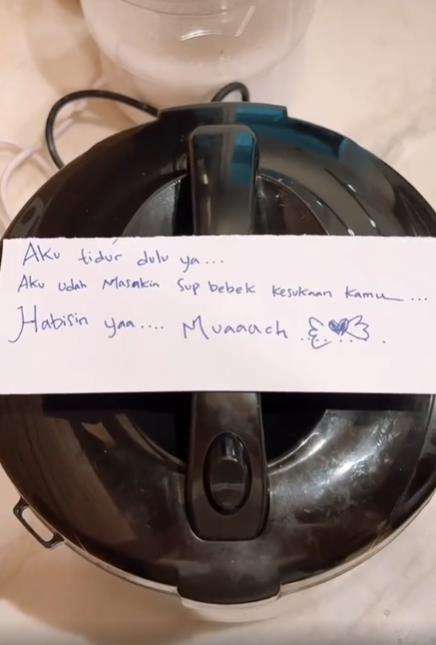 Aku tidur dulu ya...
Aku udah Masakin Sup bebek kesukaan kamu...
Habisin yaa.... Muaaach